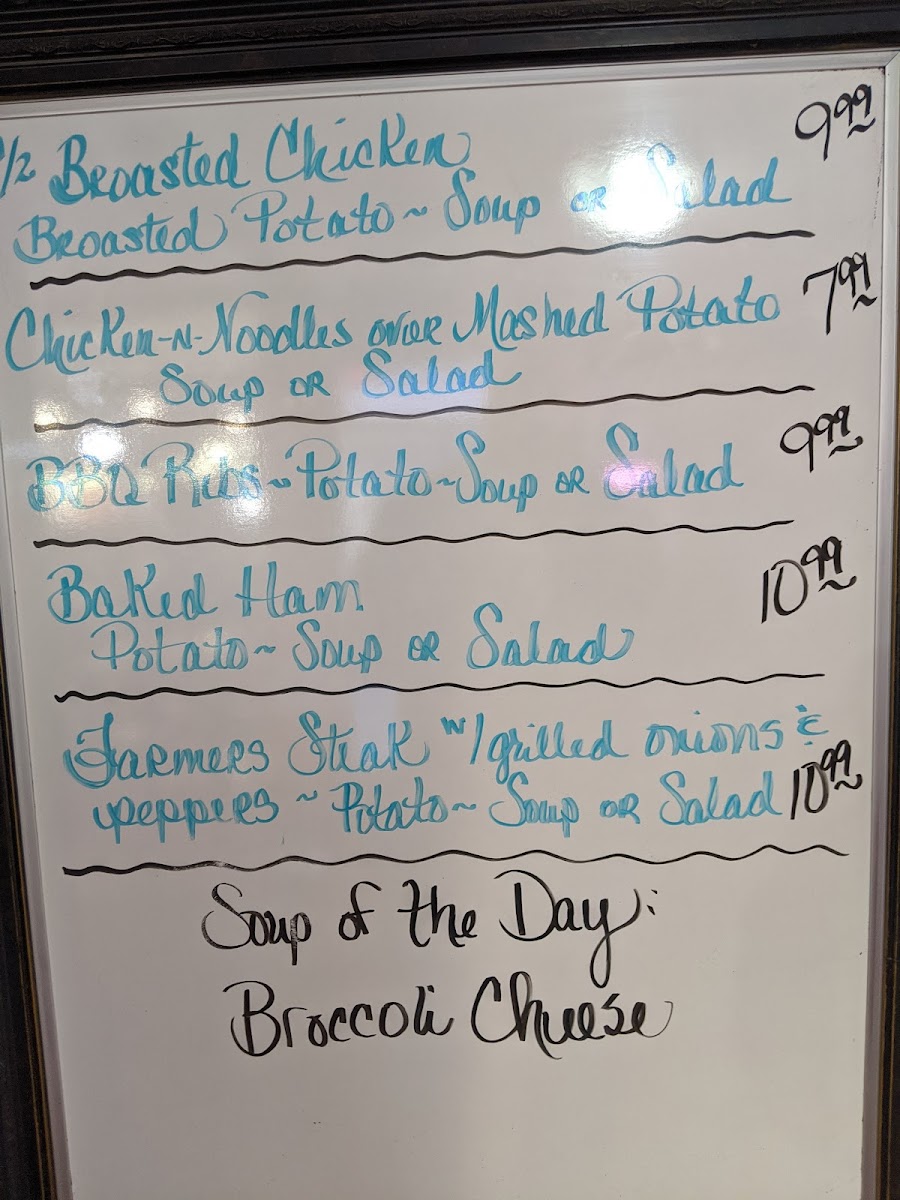 1/2 Broasted Chicken 9.99
Broasted Potato ~ Soup or Salad
Chicken-N-Noodles over Mashed Potato 7.99
Soup or Salad
BBQ Ribs ~ Potato ~ Soup or Salad 9.99
Baked Ham 10.99
Potato ~ Soup or Salad
Farmers Steak w/ grilled onions &
peppers ~ Potato ~ Soup or Salad 10.99
Soup of the Day:
Broccoli Cheese